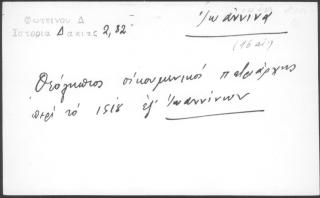 Φωτεινου Δ
Ιστορια Δακιας 2, 82
Ἰωάννινα
(16 αἰ)
Θεόληπτος οἰκουμενικός πατριάρχης
περί τό 1518 ἐξ Ἰωαννίνων